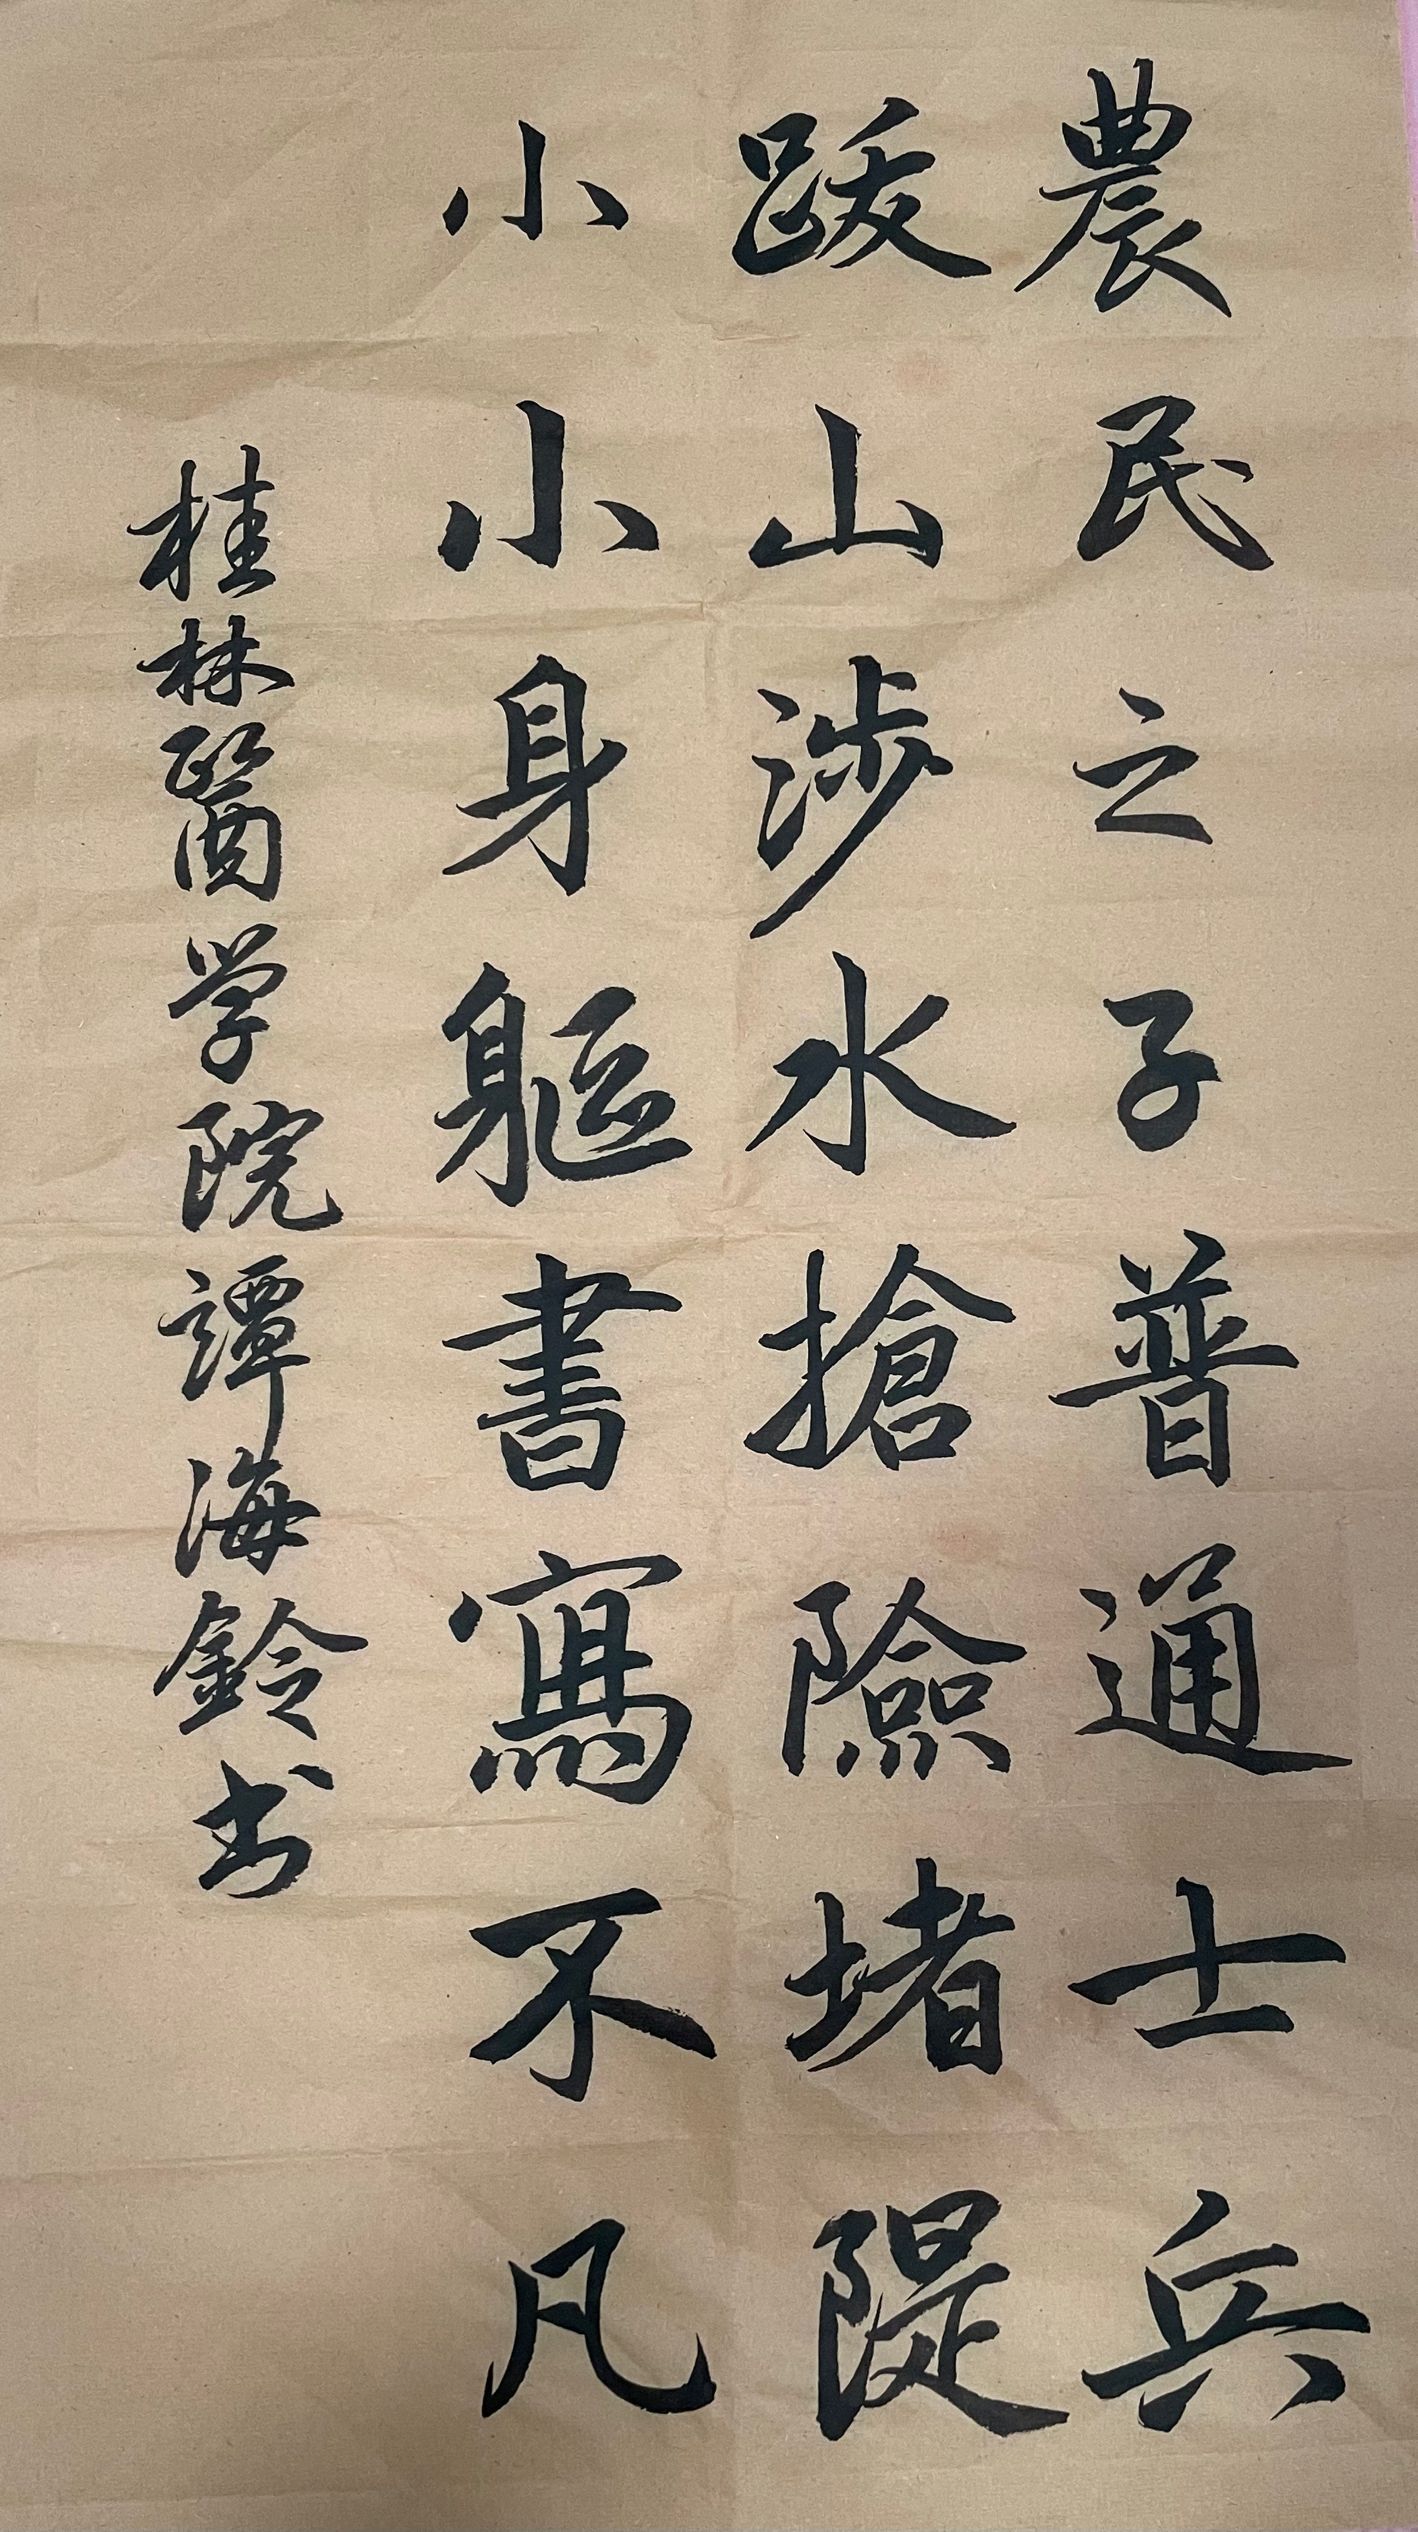 農民之子普通士兵
跋山涉水搶險堵隄
小小身軀書寫不凡
桂林醫学院譚海鈴书